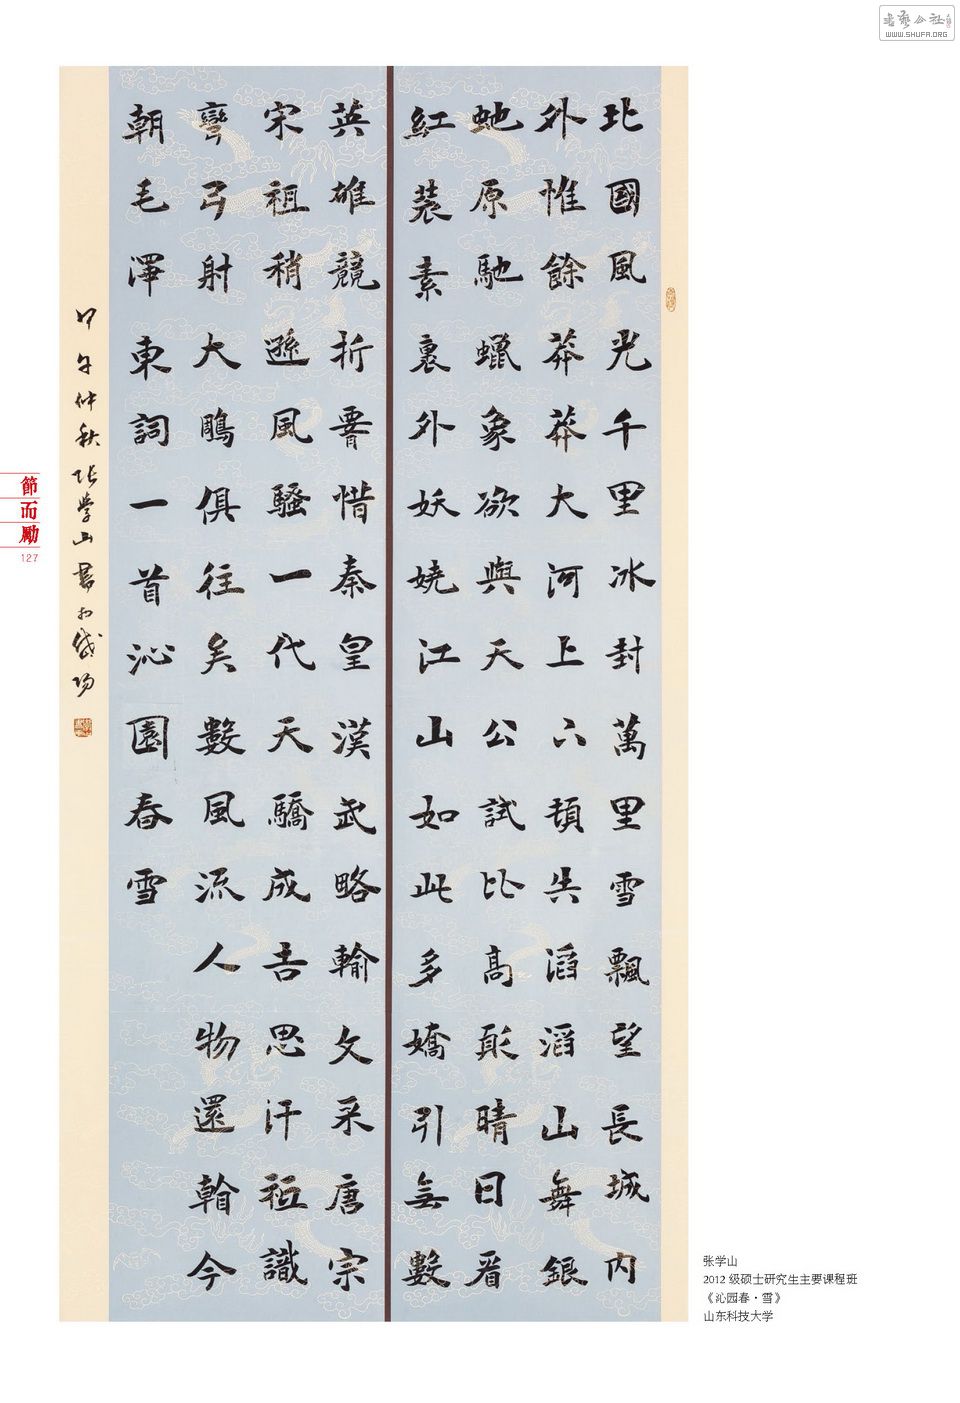 北國風光千里冰封萬里雪飄望長城内
外惟餘莽莽大河上下頓失滔滔山舞銀
虵原馳蠟象欲與天公試比高須晴日看
紅裝素裹外妖嬈江山如此多嬌引無數
英雄競折腰惜秦皇漢武略輸文采唐宗
宋祖稍遜風騷一代天驕成吉思汗祗識
彎弓射大鵰俱往矣數風流人物還看今
朝毛澤東詞一首沁園春雪
甲午仲秋張學山書於岱陽
節而勵
127
张学山
2012 级硕士研究生主要课程班
《沁园春·雪》
山东科技大学
书艺公社
WWW.SHUFA.ORG